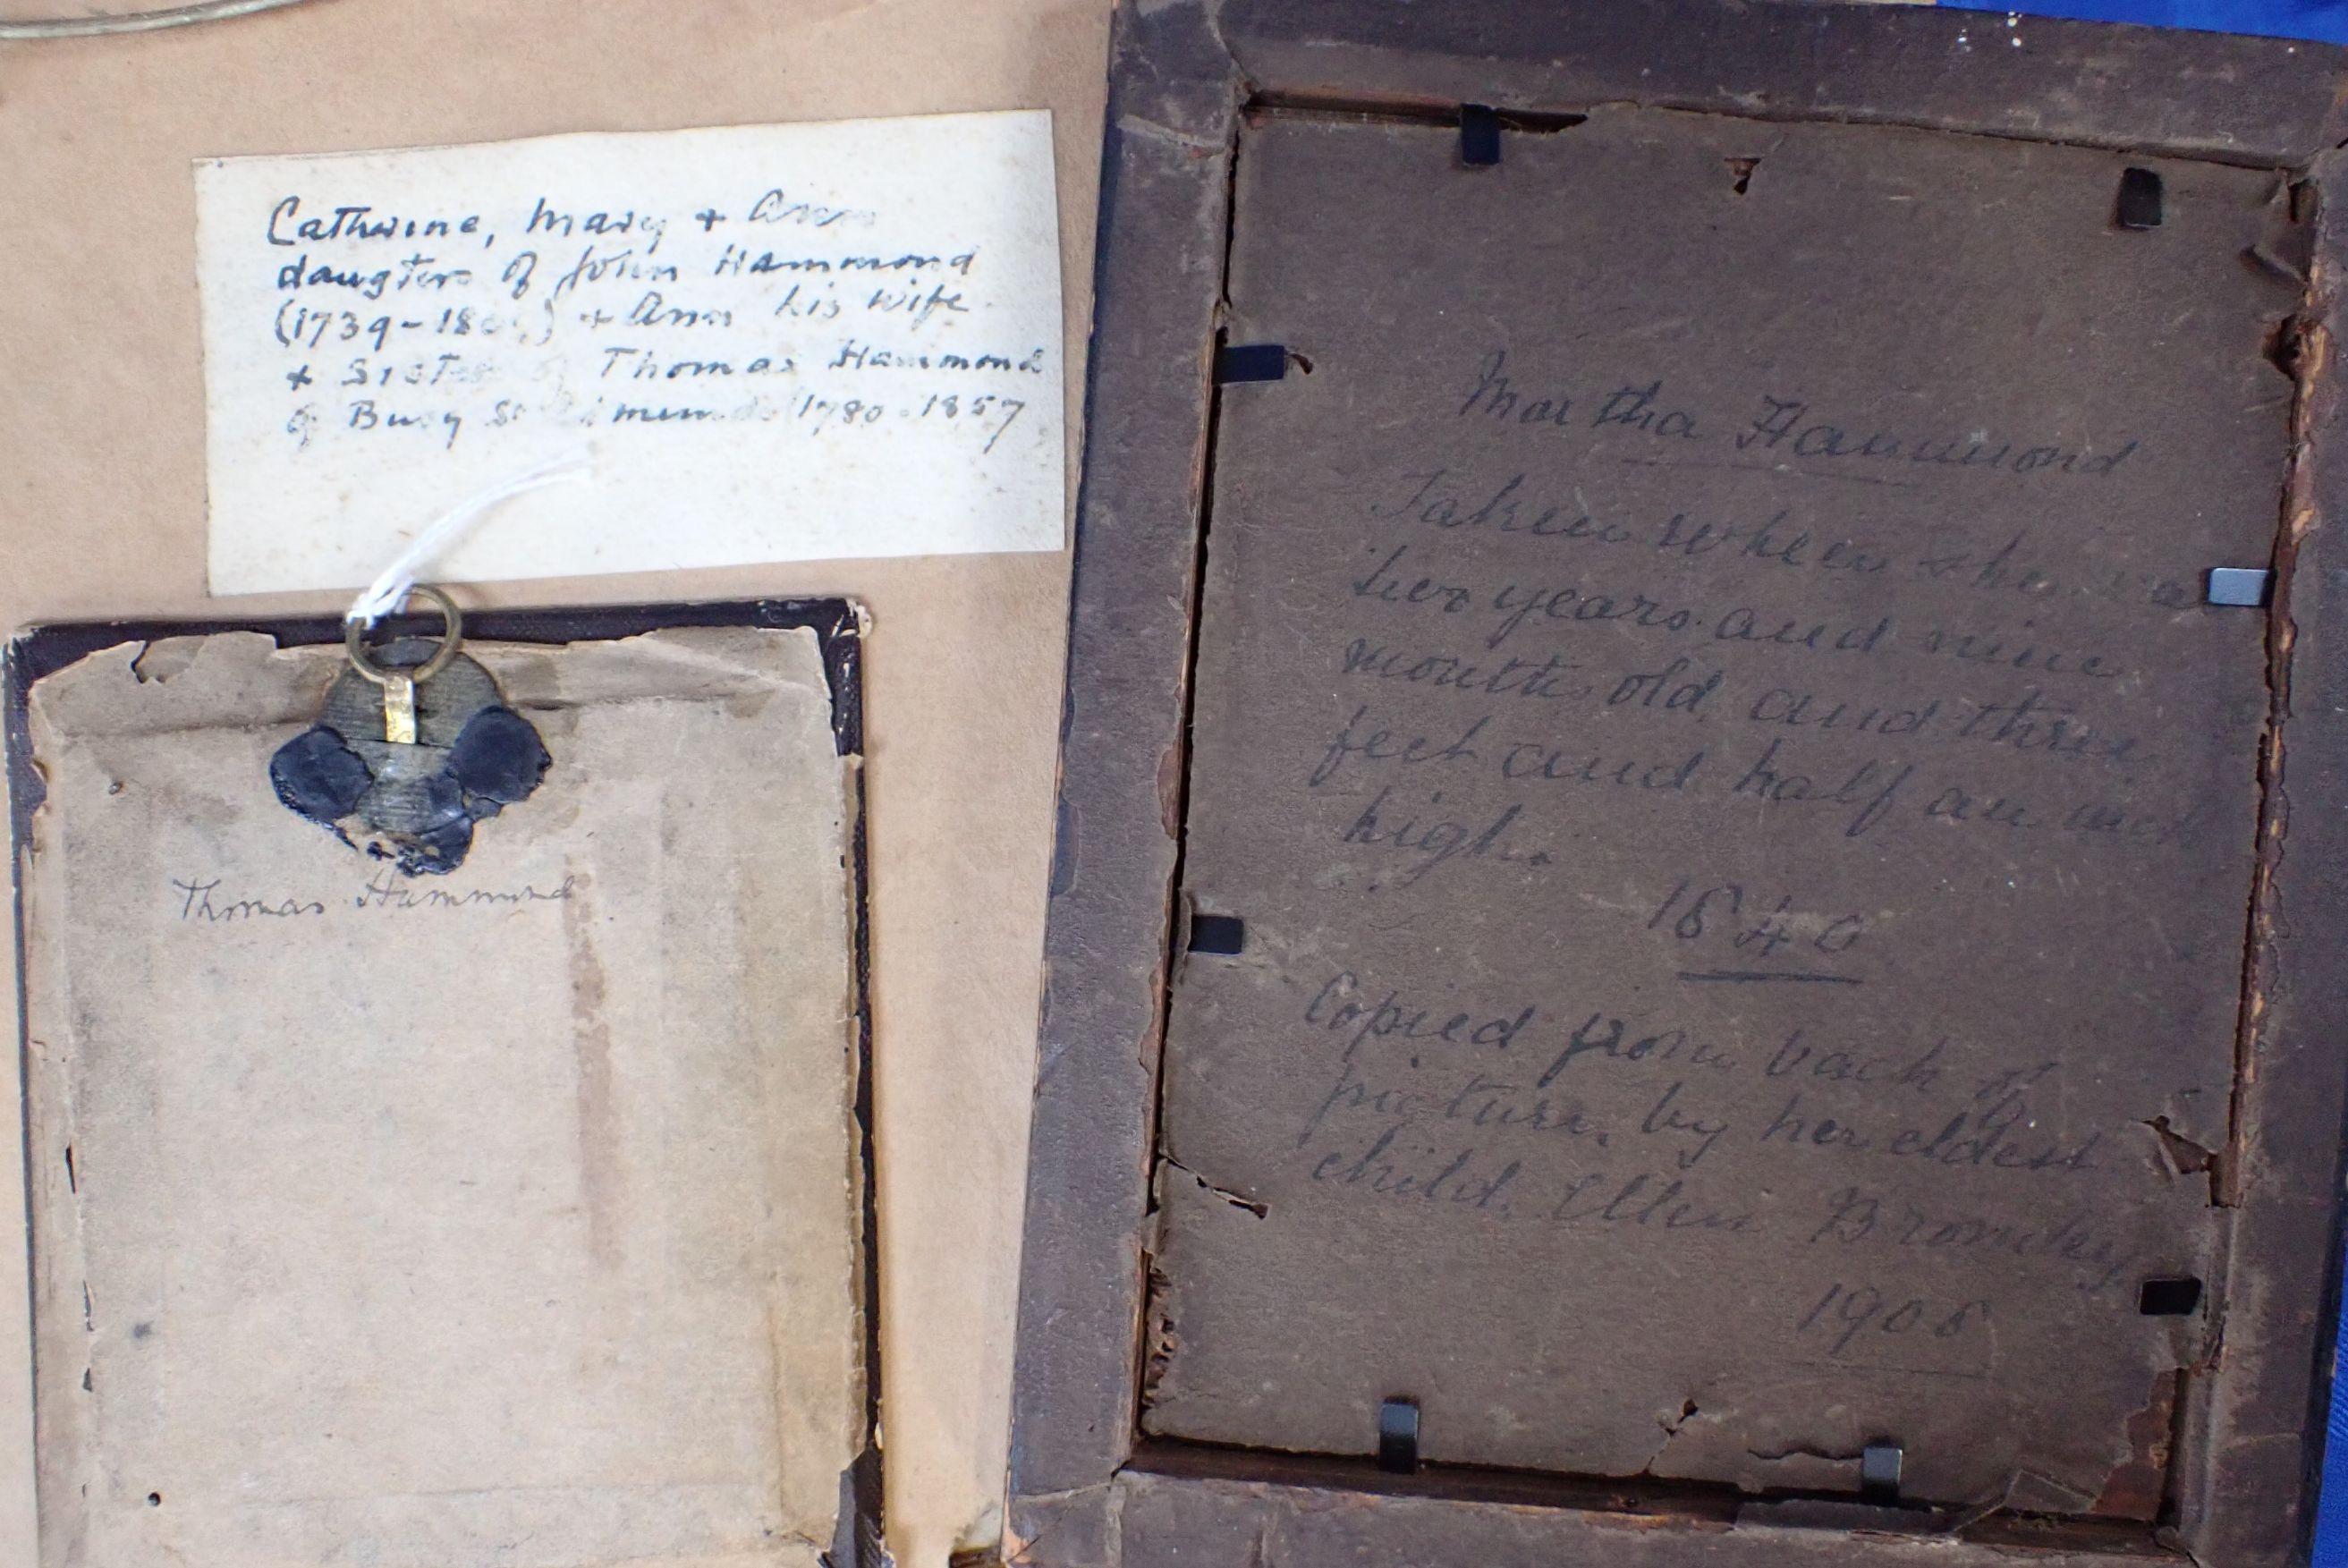 Catherine, Mary + Ann
daugters of John Hammond
(1739-18 ) + Ann his wife
+ Sister of Thomas Hammond
of Bury St Edmunds (1780-1857
Thomas Hammond
Martha Hammond
Taken when she was
two years and nine
months old, and three
feet and half an inch
high.
1840
Copied from back of
picture, by her eldest
child. Ellen
1908